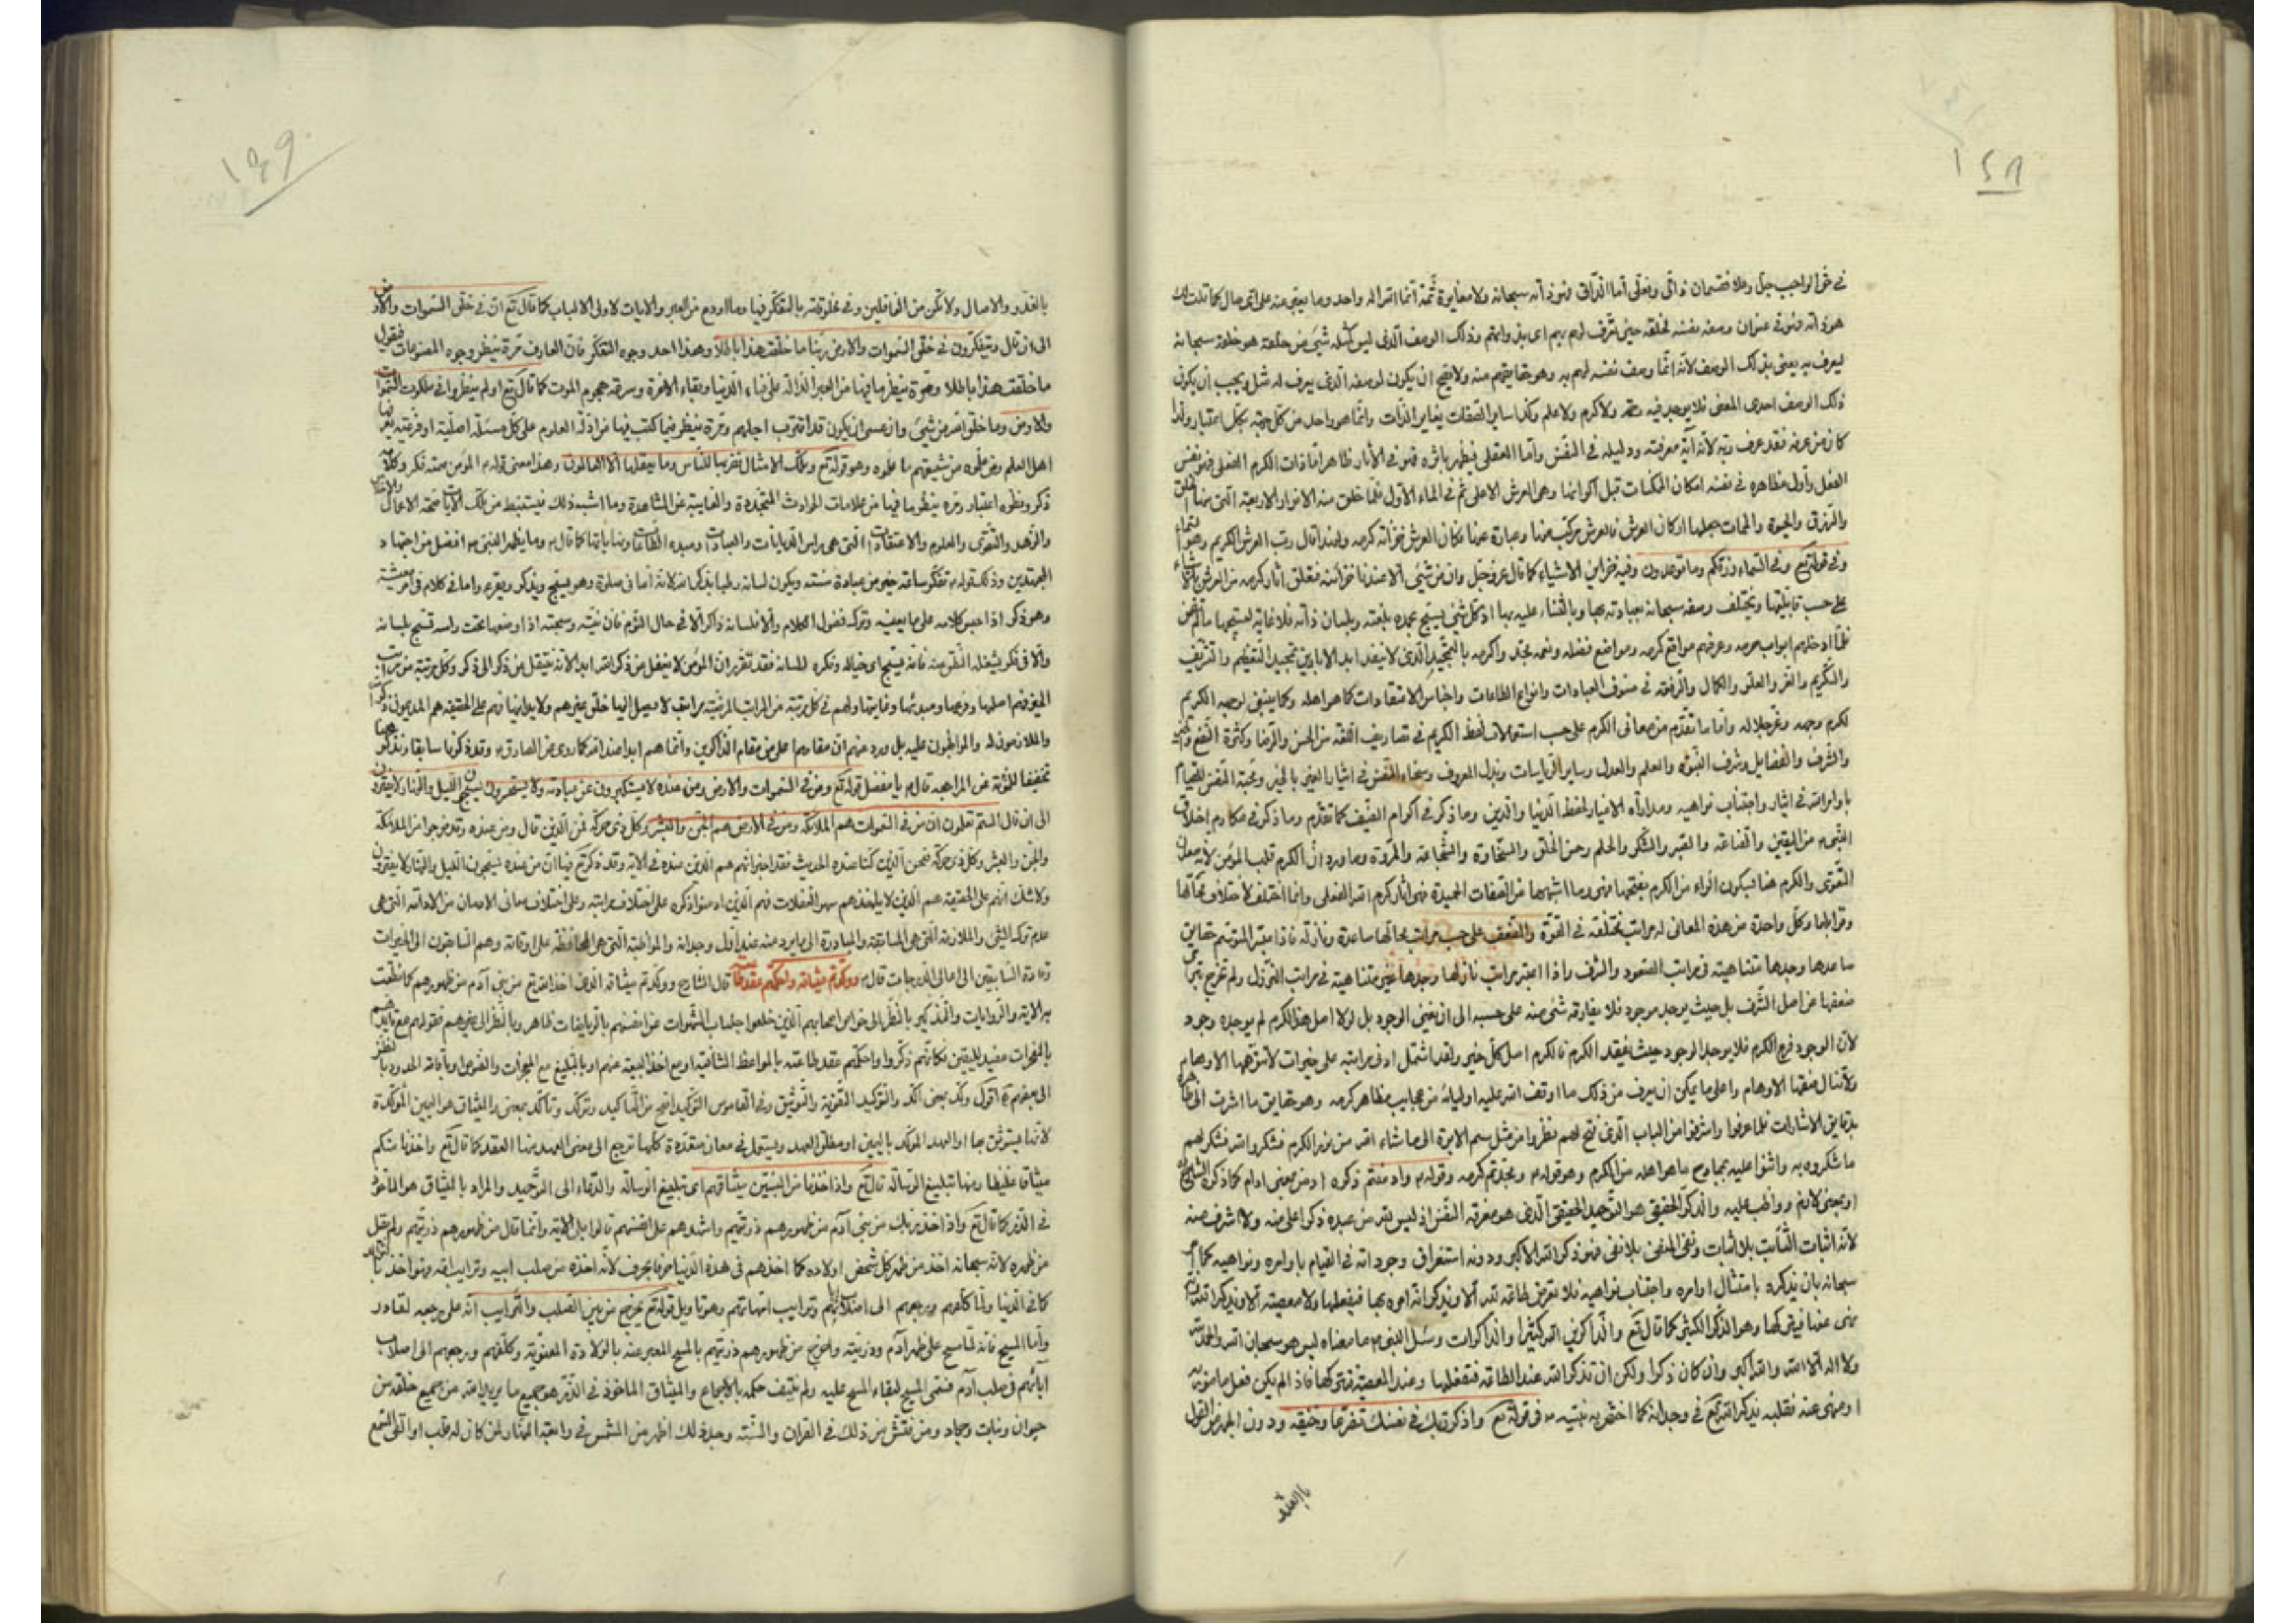 ١٤٨
في حق الواجب جل وعلا فقسمان ذاتي وفعلي أما الذاتي فهو ذاته سبحانه ولا مغايرة ثمة انما الله اله واحد وما يعبر منه على اي حال كما قلت لك
هو ذاته فهو في عنوان وصفه نفسه لخلقه حين تعرف لهم بهم اي بذواتهم وذلك الوصف الذي ليس كمثله شيء من خلقه هو خلقه سبحانه
ليعرف به يعني بذلك الوصف لأنه انما وصف نفسه لهم به وهو حقايقهم منه ولا يصح ان يكون لوصفه الذي يعرف له مثل ويجب ان يكون
ذلك الوصف احدي المعنى فلا يوجد فيه ولا كرم ولا علم وكذا ساير الصفات يغاير الذات وانما هو واحد من كل جهة بكل اعتبار ولذا
كان من عرفه فقد عرف ربه لأنه آية معرفته ودليله في النفس وأما الفعلي فيظهر باثره فهو في الآثار ظاهر اما ذات الكرم الفعلي فهو نفس
الفعل وأول مظاهره في نفسه امكان الممكنات قبل اكوانها وهو العرش الاعلى ثم في الماء الأول فلما خلق منه الانوار الاربعة التي منها الخلق
والرزق والحيوة والممات جعلها اركان العرش فالعرش مركب منها وعبارة عنها فكان العرش خزانة كرمه ولهذا قال رب العرش الكريم وهو السماء
في قوله تع وفي السماء رزقكم وما توعدون وفيه خزاين الاشياء كما قال عز وجل وان من شيء الا عندنا خزائنه فتعلق آثار كرمه من العرش بالاشياء
على حسب قابليتها وتختلف وصفه سبحانه بعبادته بها وبالثناء عليه بها اذ كل شيء يسبح بحمده بلغته وبلسان ذاته فلا غاية لتسبيحها
فلما ادخلهم ابواب حرمه وعرفهم مواقع كرمه ومواضع فضله ونعمه مجدوا كرمه بالتمجيد الذي لا ينفد ابد الابدين تمجيد التعظيم والتشريف
والتكريم والعز والعلو والكمال والرفعة في صنوف العبادات وانواع الطاعات واجناس الاعتقادات كما هو اهله وكما ينبغي لوجهه الكريم
لكرم وجهه وعز جلاله واما ما تقدم من معاني الكرم على حسب استعمالات لفظ الكريم في تصاريف اللغة من الحسن والرضا وكثرة النفع
والشرف والفضايل وشرف النبوة والعلم والعدل وساير الرياسات وبذل المعروف وسخاء النفس في ايثار الغير بالخير ومحبة النفس للقيام
باوامر الله في ايثار واجتناب نواهيه ومداراة الاغيار لحفظ الدنيا والدين وما ذكر في اكرام الضيف كما تقدم وما ذكر في مكارم اخلاق
النبي ص من اليقين والقناعة والصبر والشكر والحلم وحسن الخلق والسخاوة والشجاعة والمروة وما ورد ان الكرم قلب المؤمن لأنه معدن
التقوى والكرم هنا بسكون الراء من الكرم بفتحها فهي وما اشبهها من الصفات الحميدة فهي اثار كرم الله الفعلي وانما اختلف لاختلاف محالها
وقوابلها وكل واحدة من هذه المعاني له مراتب مختلفة في القوة والضعف على حسب مراتب محالها صاعدة ونازلة فاذا ميز المتوسم حقايق
صاعدها وجدها متناهية في مراتب الصعود والشرف واذا اعتبر مراتب نازلها وجدها غير متناهية في مراتب النزول ولم تخرج
ضعفها عن اصل الشرف بل حيث يوجد موجود فلا يفارقه شيء منه على حسبه الى ان يفنى الوجود بل لولا اصل هذا الكرم لم يوجد وجود
لأن الوجود فرع الكرم فلا يوجد الوجود حيث يفقد الكرم فالكرم اصل كل خير ولقد اشتمل ادنى مراتبه على خيرات لا تتوهمها الاوهام
ولا تنال صفتها الاوهام واعلى ما يمكن ان يعرف من ذلك ما اوقف الله عليه اولياءه من عجايب مظاهر كرمه وهو حقايق ما اشرت اليه
بدقايق الاشارات فلما عرفوا واشرفوا من الباب الذي فتح لهم نظروا من مثل سم الابرة الى ما شاء الله من نور الكرم فشكروا الله فشكر لهم
ما شكروه به واثنوا عليه بمحامد ما هو اهله من الكرم وهو قوله ع ومجدتم كرمه وقوله ع وادمنتم ذكره ادمن بمعنى ادام كما ذكره الشارح
او بمعنى لازم وواظب عليه والذكر الحقيقي هو التوحيد الحقيقي الذي هو معرفة النفس اذ ليس لله من عبده ذكر اعلى منه ولا اشرف منه
لأنه اثبات الثابت بلا اثبات ونفي المنفي بلا نفي فهو ذكر الله الاكبر ودونه استغراق وجوداته في القيام باوامره ونواهيه كما
سبحانه بان يذكره بامتثال اوامره واجتناب نواهيه فلا تعرض طاعة لله الا ويذكر الله امره بها فيفعلها ولا معصية الا ويذكر الله
نهى عنها فيتركها وهو الذكر الكثير كما قال تع والذاكرين الله كثيرا والذاكرات وسئل النبي ص ما معناه ليس هو سبحان الله والحمد لله
ولا اله الا الله والله اكبر وان كان ذكرا ولكن ان تذكر الله عند الطاعة فتفعلها وعند المعصية فتتركها فاذا لم يكن فعل مأمور به
او منهى عنه فقلبه يذكر الله تع في وجدانه كما اختص به نبيه ص في قوله تع واذكر ربك في نفسك تضرعا وخيفة ودون الجهر من القول
بالغدو
١٤٩
بالغدو والاصال ولا تكن من الغافلين وفي مخلوقاته بالتفكر فيها وما اودع من العبر والايات لاولي الالباب كما قال تع ان في خلق السموات والارض
الى ان قال ويتفكرون في خلق السموات والارض ربنا ما خلقت هذا باطلا وهذا احد وجوه التفكر فان العارف مرة ينظر وجوه المصنوعات فيقول
ما خلقت هذا باطلا ومرة ينظر ما فيها من العبر الدالة على فناء الدنيا وبقاء الاخرة وسرعة هجوم الموت كما قال تع اولم ينظروا في ملكوت السموات
والارض وما خلق الله من شيء وان عسى ان يكون قد اقترب اجلهم ومرة ينظر فيما كتب فيها من ادلة العلوم على كل مسئلة اصلية او فرعية
اهل العلم ومن علموه من شيعتهم ما علموه وهو قوله تع وتلك الامثال نضربها للناس وما يعقلها الا العالمون وهذا معنى قوله ع المؤمن صمته فكر وكلامه
ذكر ونظره اعتبار ومرة ينظر ما فيها من علامات الحوادث المتجددة والغايبة عن المشاهدة وما اشبه ذلك فيستنبط من تلك الآيات صحة الاعمال
والزهد والتقوى والعلوم والاعتقادات التي هي راس الديانات والعبادات ومبدء الطاعات كما قال ع وما يظهر النبي ص افضل من اجتهاد
المجتهدين وذلك قوله ع تفكر ساعة خير من عبادة سنة ويكون لسانه رطبا بذكر الله لأنه اما في صلوة وهو يسبح ويذكر ويقرء واما في كلام في أمر معيشته
وهو ذكر اذا حبس كلامه على ما يعنيه وترك فضول الكلام والا فلسانه ذاكر الا في حال النوم فان نيته وسبحته اذا وضعها تحت راسه تسبح بلسانه
والا في فكر يشغله النطق عنه فانه يسبح اي خياله وفكره للسانه فقد تقرر ان المؤمن لا يغفل من ذكر الله ابدا لأنه ينتقل من ذكر الى ذكر وكل مرتبة من مراتب
اليقين فهم اصلها وفرعها ومبدئها وغايتها ولهم في كل مرتبة من المراتب المرضية مراتب لا يصل اليها خلق غيرهم ولا يدانيها فهم على الحقيقة هم المديمون
والملازمون له والمواظبون عليه بل ورد عنهم ان مقامهم اعلى من مقام الذاكرين وانما هم ابدا عند الله كما روي عن الصادق ع وقد ذكرنا سابقا ونذكر هنا
تخفيفا للمؤنة عن المراجعة قال ع يا مفضل قوله تع ومن في السموات والارض ومن عنده لا يستكبرون عن عبادته ولا يستحسرون يسبحون الليل والنهار لا يفترون
الى ان قال الستم تعلمون ان من في السموات هم الملائكة ومن في الارض هم الجن والبشر وكل ذي حركة فمن الذين قال ومن عنده وقد خرجوا من الملائكة
والجن والبشر وكل ذي حركة فنحن الذين كنا عنده الحديث فقد اخبر انهم هم الذين عنده في الآية وقد ذكر تع فيها ان من عنده يسبحون الليل والنهار لا يفترون
ولا شك انهم على الحقيقة هم الذين لا يلهفهم سهو الغفلات فهم الذين ادمنوا ذكره على اختلاف مراتبه وعلى اختلاف معاني الادمان من الادامة التي هي
عدم ترك الشيء والملازمة التي هي المسابقة والمبادرة الى ما يريد منه عند أول وجدانه والمواظبة التي هي المحافظة على اوقاته وهم السابقون الى الخيرات
وقادة السابقين الى اعالي الدرجات قال ع ووكدتم ميثاقه واحكمتم عقد طاعته قال الشارح ووكدتم ميثاقه الذي اخذ الله تع من بني آدم من ظهورهم كما نطقت
به الآية والروايات والتذكير بالنظر الى خواص اصحابهم الذين خلعوا جلباب الشهوات عن انفسهم بالرياضات ظاهر وبالنظر الى غيرهم فقولهم مع تأييدهم
بالمعجزات مفيد لليقين فكانهم ذكروا واحكمتم عقد طاعته بالمواعظ الشافية او مع اخذ البيعة عنهم او بالتبليغ مع المعجزات والنصوص او باقامة الحدود بالنظر
الى بعضهم انتهى اقول وكد بمعنى اكد والتوكيد التقوية والتوثيق وفي القاموس التوكيد افصح من التاكيد وتوكد وتاكد بمعنى والميثاق هو اليمين المؤكدة
لأنها يستوثق بها او العهد المؤكد باليمين او مطلق العهد ويستعمل في معان متعددة كلها ترجع الى معنى العهد منها العقد كما قال تع واخذنا منكم
ميثاقا غليظا ومنها تبليغ الرسالة قال تع واذ اخذنا من النبيين ميثاقهم اي تبليغ الرسالة والدعاء الى التوحيد والمراد بالميثاق هو المأخوذ
في الذر كما قال تع واذ اخذ ربك من بني آدم من ظهورهم ذريتهم واشهدهم على انفسهم قالوا بلى الآية وانما قال من ظهورهم ذريتهم ولم يقل
من ظهره لأنه سبحانه اخذ من ظهر كل شخص اولاده كما اخذهم في هذه الدنيا حرفا بحرف لأنه اخذه من صلب ابيه وترايب امه
كما في الدنيا ولما كلفهم ورجعهم الى اصلاب آبائهم وترايب امهاتهم وهو تاويل قوله تع يخرج من بين الصلب والترايب انه على رجعه لقادر
وأما المسيح فانه لما مسح على ظهر آدم وذريته واخرج من ظهورهم ذريتهم بالمسح المعبر عنه بالولادة المعنوية وكلفهم ورجعهم الى اصلاب
آبائهم في صلب آدم فسمى المسيح لبقاء المسح عليه ولم ينتف حكمه بالارجاع والميثاق الماخوذ في الذر هو جميع ما يريد الله من جميع خلقه من
حيوان ونبات وجماد ومن فتش عن ذلك في القرآن والسنة وجد ذلك اظهر من الشمس في رابعة النهار لمن كان له قلب او القى السمع